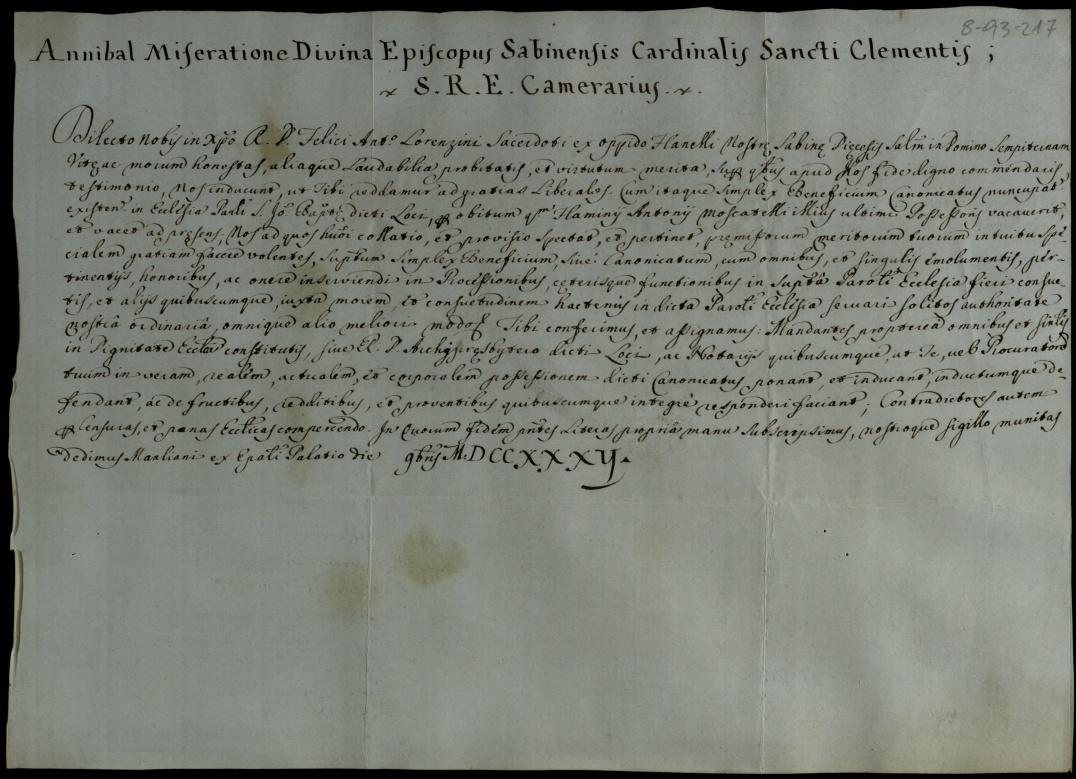 8-93-217
Annibal Miseratione Divina Episcopus Sabinensis Cardinalis Sancti Clementis ;
S. R. E. Camerarius.
Dilecto Nobis in Xpo R. P. Felici Anto Lorenzini Sacerdoti ex oppido Flanelli Nostrę Sabinę Dięcesis Salm in Domino Sempiternam
Vitę ac morum honestas, aliaque Laudabilia probitatis, et virtutum merita, sup qbus apud Nos fide digno commendaris
testimonio, Nos inducunt, ut Tibi reddamur ad gratias Liberales. Cum itaque Simplex Beneficium Canonicatus nuncupat
existen in Ecclesia Parli S. Jo. Bapt dicti Loci, obitum qm Flaminij Antonij Moscatelli illius ultimi Possessoris vacaverit,
et vacet ad pręsens, Nos ad quos hmoi collatio, et provisio spectat, et pertinet, pręmissorum meritorum tuorum intuitu Spe-
cialem gratiam facere volentes, Suptum Simplex Beneficium, sive Canonicatum, cum omnibus, et singulis emolumentis, per-
tinentijs, honoribus, ac onere inserviendi in Processionibus, cęterisque functionibus in Suptā Paroli Ecclesia fieri consue-
tis, et alijs quibuscumque, iuxta morem, et consuetudinem hactenus in dicta Paroli Ecclesia servari solitos authoritate
Nostrā ordinariā, omnique alio meliori modo Tibi conferimus, et assignamus: Mandantes proptereā omnibus et sinlis
in Dignitate Eccla constitutis, sive R. P. Archipresbytero dicti Loci, ac Notarijs quibuscumque, ut Te, vel Procuratorē
tuum in veram, realem, actualem, et corporalem possessionem dicti Canonicatus ponant, et inducant, inductumque de-
fendant, ac de fructibus, redditibus, et proventibus quibuscumque integrè responderi faciant; Contradictores autem
Censuras, et pœnas Ecclicas compercendo. In Quorum fidem pntes Literas propriā manu Subscripsimus, nostroque sigillo munitas
dedimus Manliani ex Epali Palatio die 9bris MDCCXXXIJ.